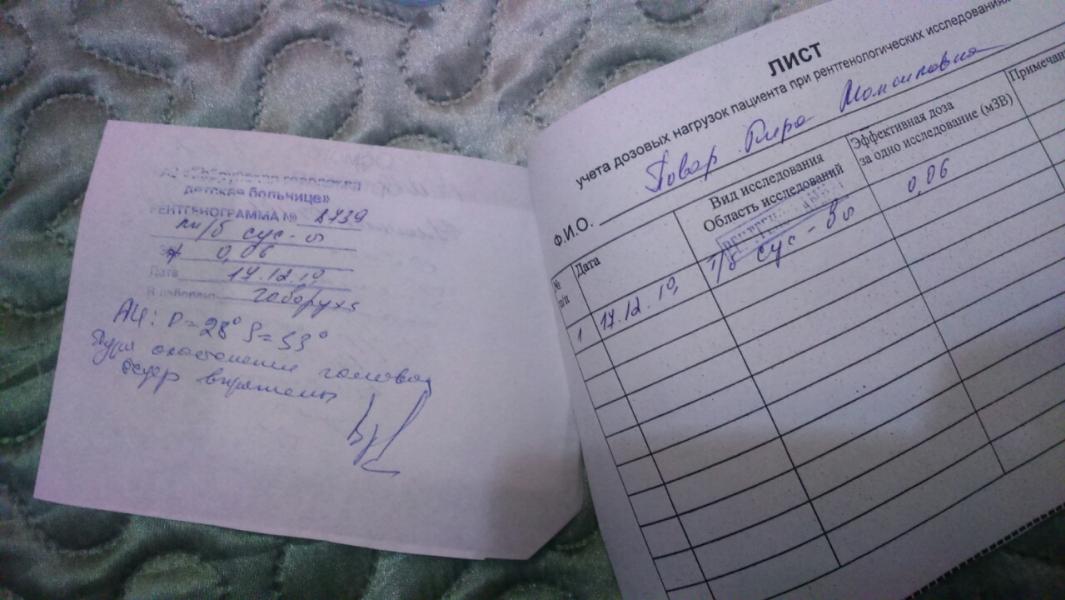 городская
детская больница»
РЕНТГЕНОГРАММА № 8739
т/б сус-в
0,06
Дата 17.12.19,
D = 28° S = 33°
Ядра окостенения головок
бедер выражены
ЛИСТ
учета дозовых нагрузок пациента при рентгенологических исследованиях
Ф.И.О.
№ п/п
Дата
Вид исследования
Область исследований
Эффективная доза
за одно исследование (мЗВ)
Примечан
1 17.12.19, т/б сус-вы 0,06